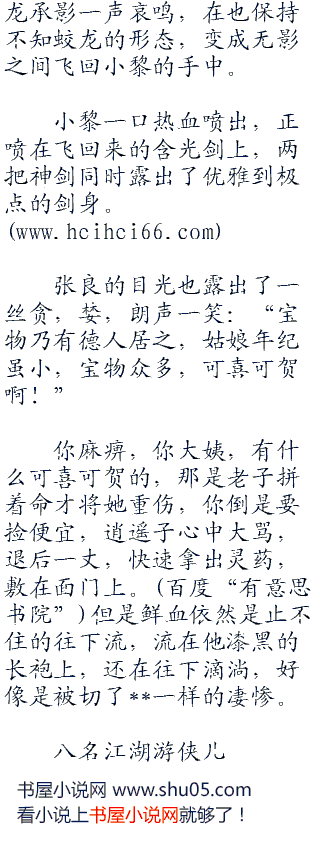 龙承影一声哀鸣，在也保持
不知蛟龙的形态，变成无影
之间飞回小黎的手中。
小黎一口热血喷出，正
喷在飞回来的含光剑上，两
把神剑同时露出了优雅到极
点的剑身。
(www.hcihci66.com)
张良的目光也露出了一
丝贪，婪，朗声一笑：“宝
物乃有德人居之，姑娘年纪
虽小，宝物众多，可喜可贺
啊！”
你麻痹，你大姨，有什
么可喜可贺的，那是老子拼
着命才将她重伤，你倒是要
捡便宜，逍遥子心中大骂，
退后一丈，快速拿出灵药，
敷在面门上。(百度“有意思
书院”)但是鲜血依然是止不
住的往下流，流在他漆黑的
长袍上，还在往下滴淌，好
像是被切了**一样的凄惨。
八名江湖游侠儿
书屋小说网 www.shu05.com
看小说上书屋小说网就够了！